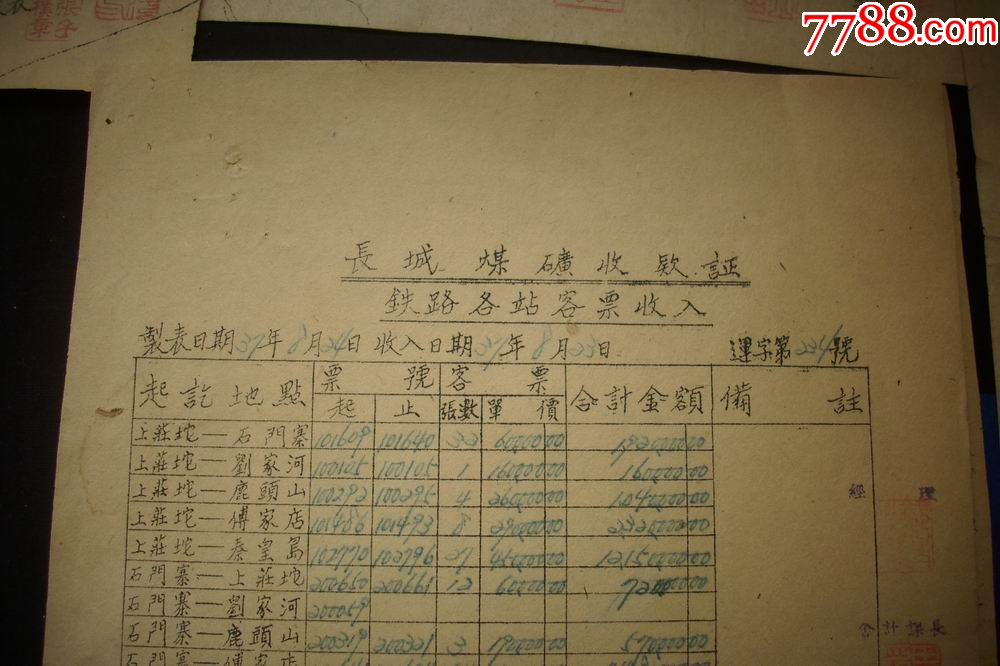 7788.com
長城煤礦收欵証
鉄路各站客票收入
製表日期37年8月24日 收入日期37年8月23日 運字第234號
起訖地點 票號 客票 合計金額 備註
起 止 張數 單價
上莊坨——石門寨 101609 101640 32 60000.00 1920000.00
上莊坨——劉家河 100105 100105 1 160000.00 160000.00
上莊坨——鹿頭山 100292 100295 4 260000.00 1040000.00
上莊坨——傅家店 101486 101493 8 290000.00 2320000.00
上莊坨——秦皇島 102770 102796 27 450000.00 12150000.00
石門寨——上莊坨 200650 200661 12 60000.00 720000.00
石門寨——劉家河 200059
石門寨——鹿頭山 200319 200321 3 190000.00 570000.00
石門寨——傅家店
經理
會計課長